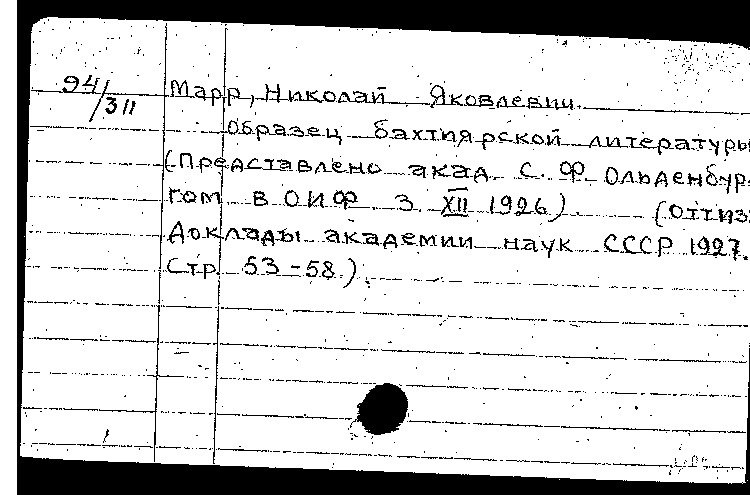 94/311 Марр, Николай Яковлевич.
Образец бахтиярской литературы
(Представлено акад. С. Ф. Ольденбур-
гом в ОИФ 3 XII 1926). (Оттиз:
Доклады академии наук СССР 1927.
Стр 53-58.).